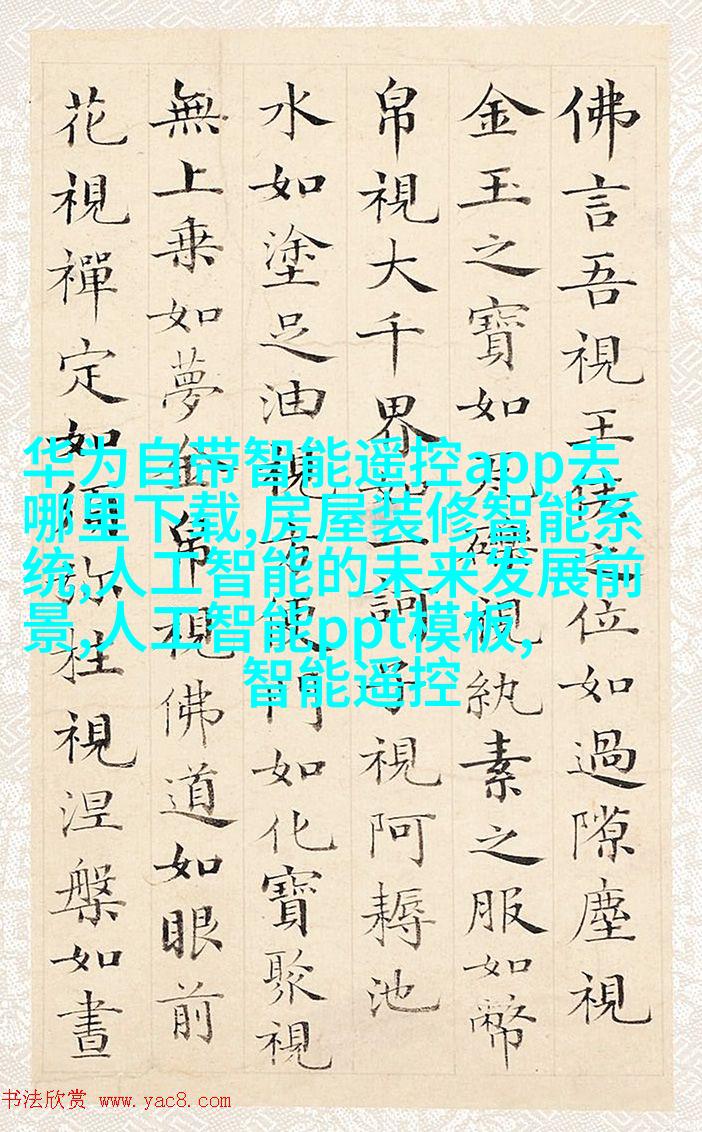 佛言吾視王侯之位如過隙塵視
金玉之寶如瓦礫視紈素之服如幣
帛視大千界一訶子視阿耨池
水如塗足油視方便門如化寶聚視
無上乗如夢金帛視佛道如眼前
花視禪定如須弥柱視涅槃如晝
华为自带智能遥控app去
哪里下载,房屋装修智能系
统,人工智能的未来发展前
景,人工智能ppt模板,
智能遥控
书法欣赏 www.yac8.com